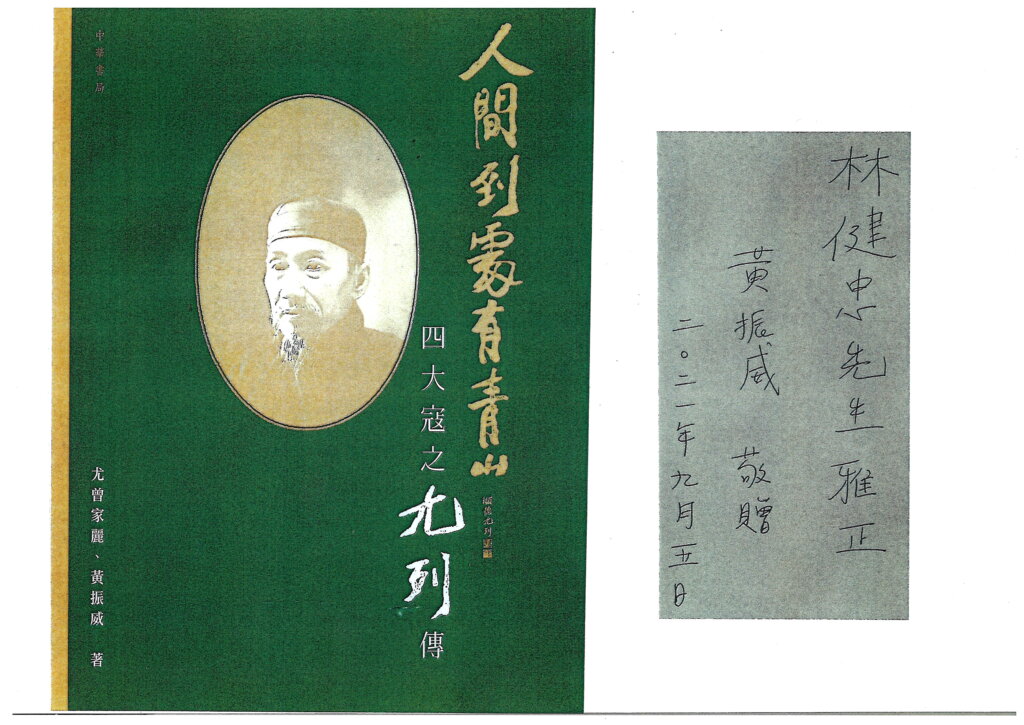 人間到處有青山
四大寇之
尤列
傳
中華書局
尤曾家麗、黃振威 著
林健忠先生雅正
黃振威 敬贈
二〇二一年九月五日